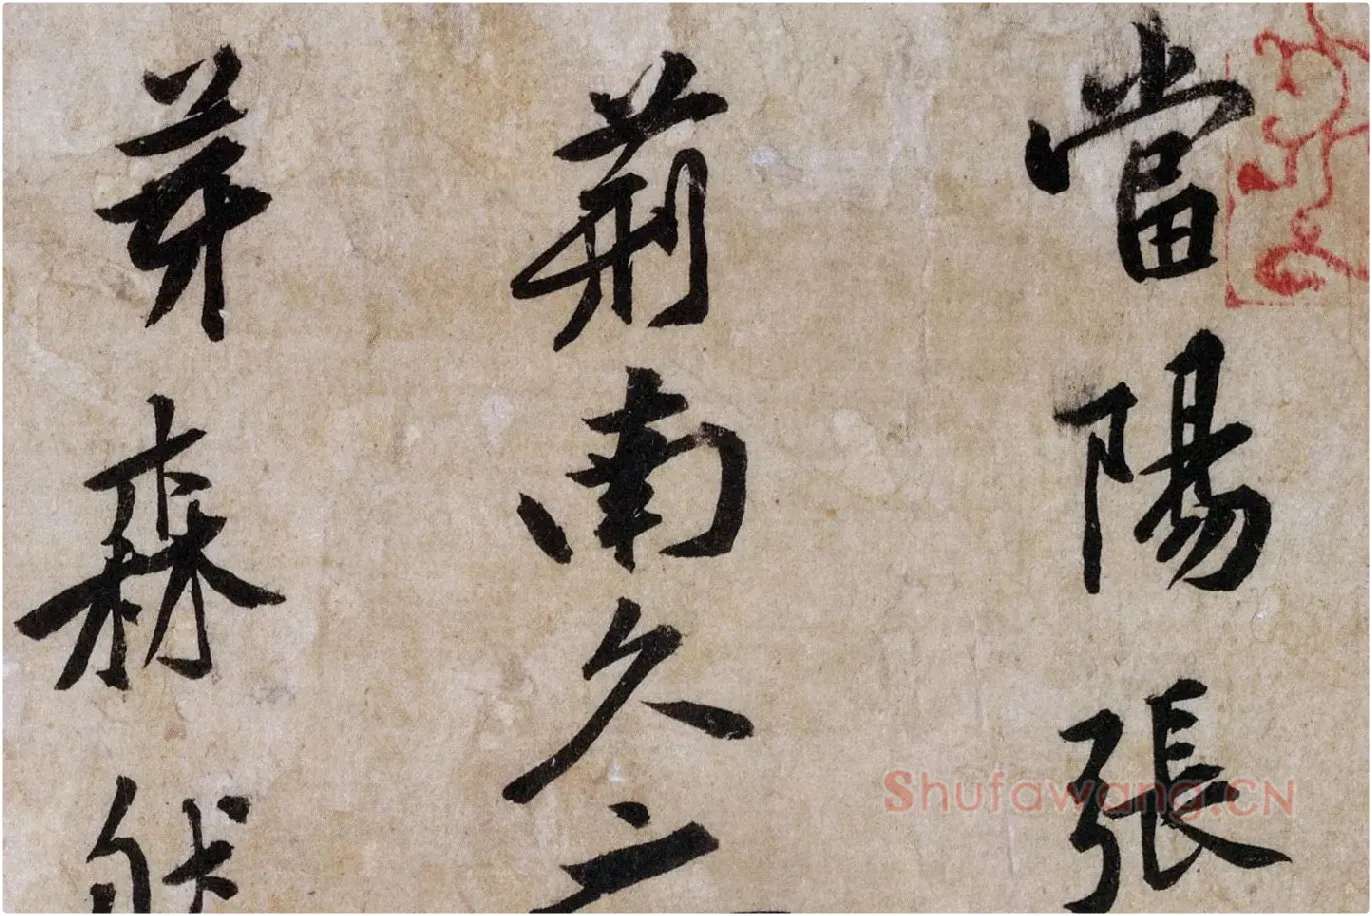 當陽張
荊南久之
芽森然
Shufawang.CN